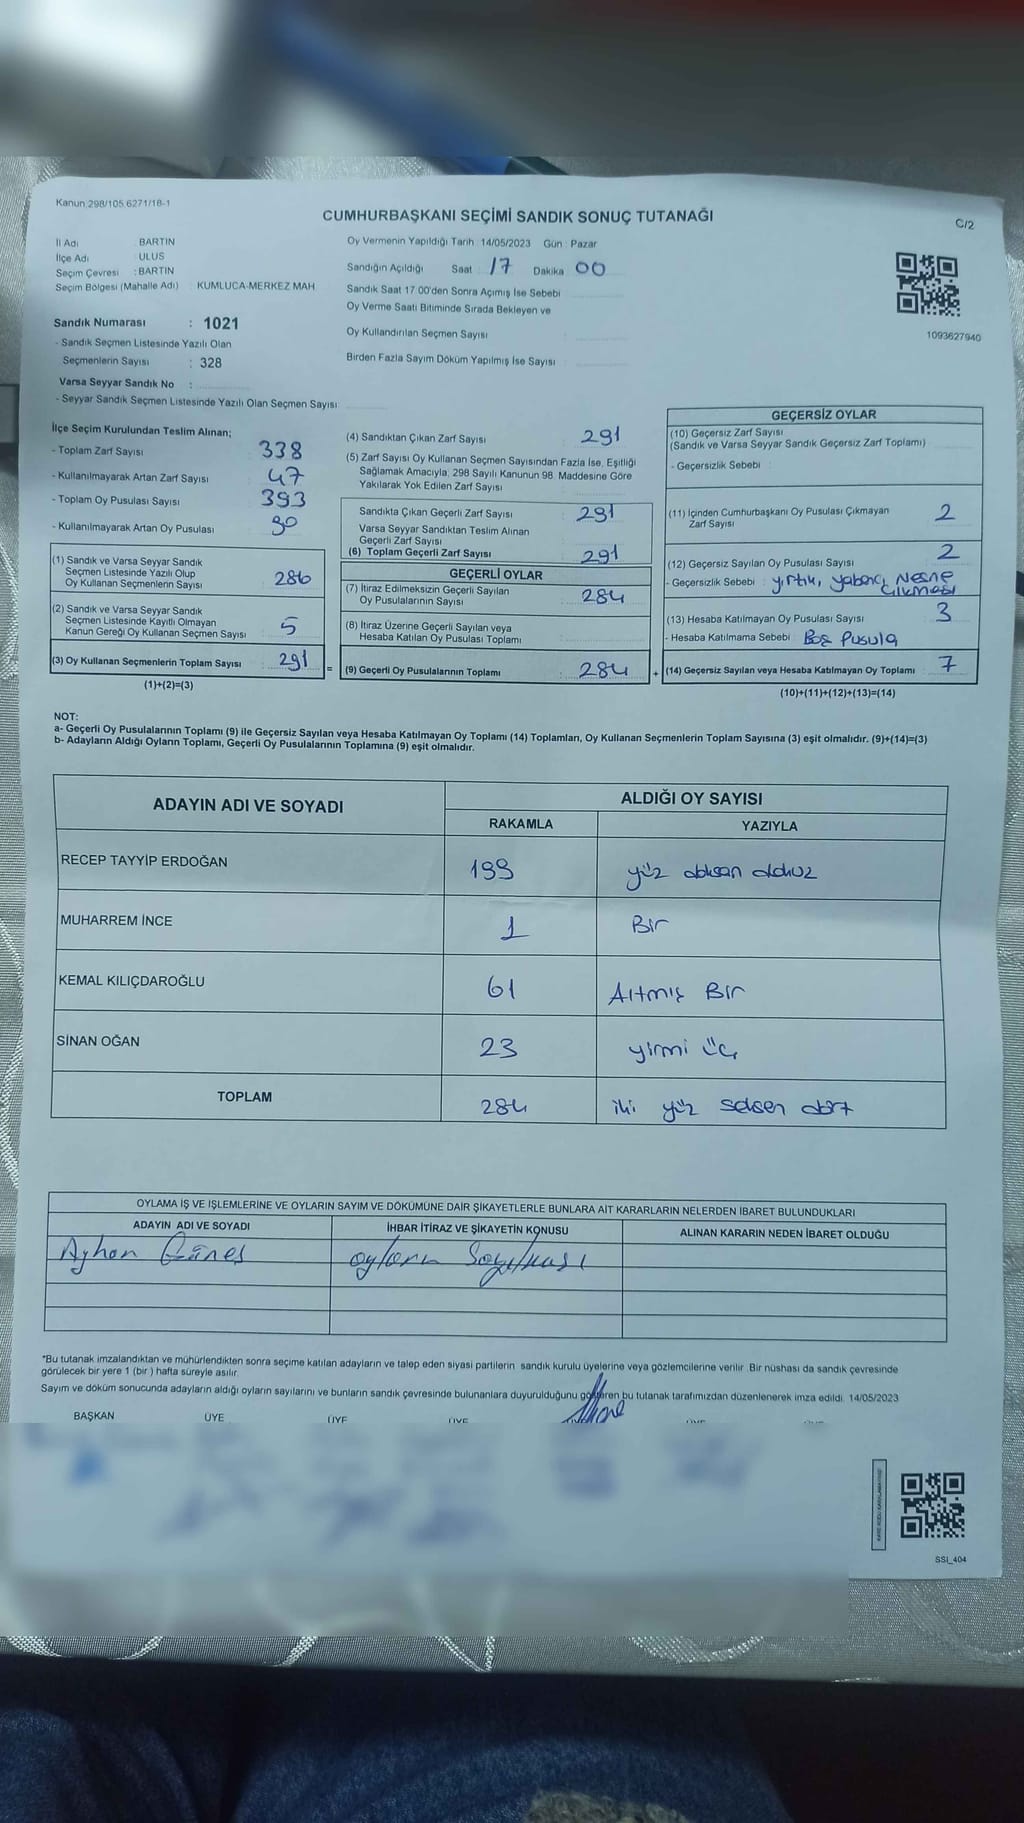 Kanun:298/105 6271/18-1
CUMHURBAŞKANI SEÇİMİ SANDIK SONUÇ TUTANAĞI
C/2
İl Adı : BARTIN
İlçe Adı : ULUS
Seçim Çevresi : BARTIN
Seçim Bölgesi (Mahalle Adı) : KUMLUCA-MERKEZ MAH.
Sandık Numarası : 1021
- Sandık Seçmen Listesinde Yazılı Olan
Seçmenlerin Sayısı : 328
Varsa Seyyar Sandık No :
- Seyyar Sandık Seçmen Listesinde Yazılı Olan Seçmen Sayısı:
Oy Vermenin Yapıldığı Tarih 14/05/2023 Gün : Pazar
Sandığın Açıldığı Saat : 17 Dakika 00
Sandık Saat 17.00'den Sonra Açımış İse Sebebi
Oy Verme Saati Bitiminde Sırada Bekleyen ve
Oy Kullandırılan Seçmen Sayısı :
Birden Fazla Sayım Döküm Yapılmış İse Sayısı :
1093627940
İlçe Seçim Kurulundan Teslim Alınan;
- Toplam Zarf Sayısı : 338
- Kullanılmayarak Artan Zarf Sayısı : 47
- Toplam Oy Pusulası Sayısı : 393
- Kullanılmayarak Artan Oy Pusulası : 90
(1) Sandık ve Varsa Seyyar Sandık
Seçmen Listesinde Yazılı Olup
Oy Kullanan Seçmenlerin Sayısı : 286
(2) Sandık ve Varsa Seyyar Sandık
Seçmen Listesinde Kayıtlı Olmayan
Kanun Gereği Oy Kullanan Seçmen Sayısı : 5
(3) Oy Kullanan Seçmenlerin Toplam Sayısı : 291
(1)+(2)=(3)
=
(4) Sandıktan Çıkan Zarf Sayısı : 291
(5) Zarf Sayısı Oy Kullanan Seçmen Sayısından Fazla İse, Eşitliği
Sağlamak Amacıyla; 298 Sayılı Kanunun 98. Maddesine Göre
Yakılarak Yok Edilen Zarf Sayısı :
Sandıkta Çıkan Geçerli Zarf Sayısı : 291
Varsa Seyyar Sandıktan Teslim Alınan
Geçerli Zarf Sayısı :
(6) Toplam Geçerli Zarf Sayısı : 291
GEÇERLİ OYLAR
(7) İtiraz Edilmeksizin Geçerli Sayılan
Oy Pusulalarının Sayısı : 284
(8) İtiraz Üzerine Geçerli Sayılan veya
Hesaba Katılan Oy Pusulası Toplamı :
(9) Geçerli Oy Pusulalarının Toplamı : 284
+
GEÇERSİZ OYLAR
(10) Geçersiz Zarf Sayısı
(Sandık ve Varsa Seyyar Sandık Geçersiz Zarf Toplamı)
- Geçersizlik Sebebi :
(11) İçinden Cumhurbaşkanı Oy Pusulası Çıkmayan
Zarf Sayısı : 2
(12) Geçersiz Sayılan Oy Pusulası Sayısı : 2
- Geçersizlik Sebebi : yırtık, yabancı Nesne
çıkması
(13) Hesaba Katılmayan Oy Pusulası Sayısı : 3
- Hesaba Katılmama Sebebi : Boş Pusula
(14) Geçersiz Sayılan veya Hesaba Katılmayan Oy Toplamı : 7
(10)+(11)+(12)+(13)=(14)
NOT:
a- Geçerli Oy Pusulalarının Toplamı (9) ile Geçersiz Sayılan veya Hesaba Katılmayan Oy Toplamı (14) Toplamları, Oy Kullanan Seçmenlerin Toplam Sayısına (3) eşit olmalıdır. (9)+(14)=(3)
b- Adayların Aldığı Oyların Toplamı, Geçerli Oy Pusulalarının Toplamına (9) eşit olmalıdır.
ADAYIN ADI VE SOYADI
ALDIĞI OY SAYISI
RAKAMLA YAZIYLA
RECEP TAYYİP ERDOĞAN 199 yüz doksan dokuz
MUHARREM İNCE 1 Bir
KEMAL KILIÇDAROĞLU 61 Altmış Bir
SİNAN OĞAN 23 yirmi üç
TOPLAM 284 iki yüz seksen dört
OYLAMA İŞ VE İŞLEMLERİNE VE OYLARIN SAYIM VE DÖKÜMÜNE DAİR ŞİKAYETLERLE BUNLARA AİT KARARLARIN NELERDEN İBARET BULUNDUKLARI
ADAYIN ADI VE SOYADI İHBAR İTİRAZ VE ŞİKAYETİN KONUSU ALINAN KARARIN NEDEN İBARET OLDUĞU
Ayhan Güneş oyların Sayılması
*Bu tutanak imzalandıktan ve mühürlendikten sonra seçime katılan adayların ve talep eden siyasi partilerin sandık kurulu üyelerine veya gözlemcilerine verilir. Bir nüshası da sandık çevresinde
görülecek bir yere 1 (bir) hafta süreyle asılır.
Sayım ve döküm sonucunda adayların aldığı oyların sayılarını ve bunların sandık çevresinde bulunanlara duyurulduğunu gösteren bu tutanak tarafımızdan düzenlenerek imza edildi. 14/05/2023
BAŞKAN ÜYE ÜYE ÜYE
SSI_404